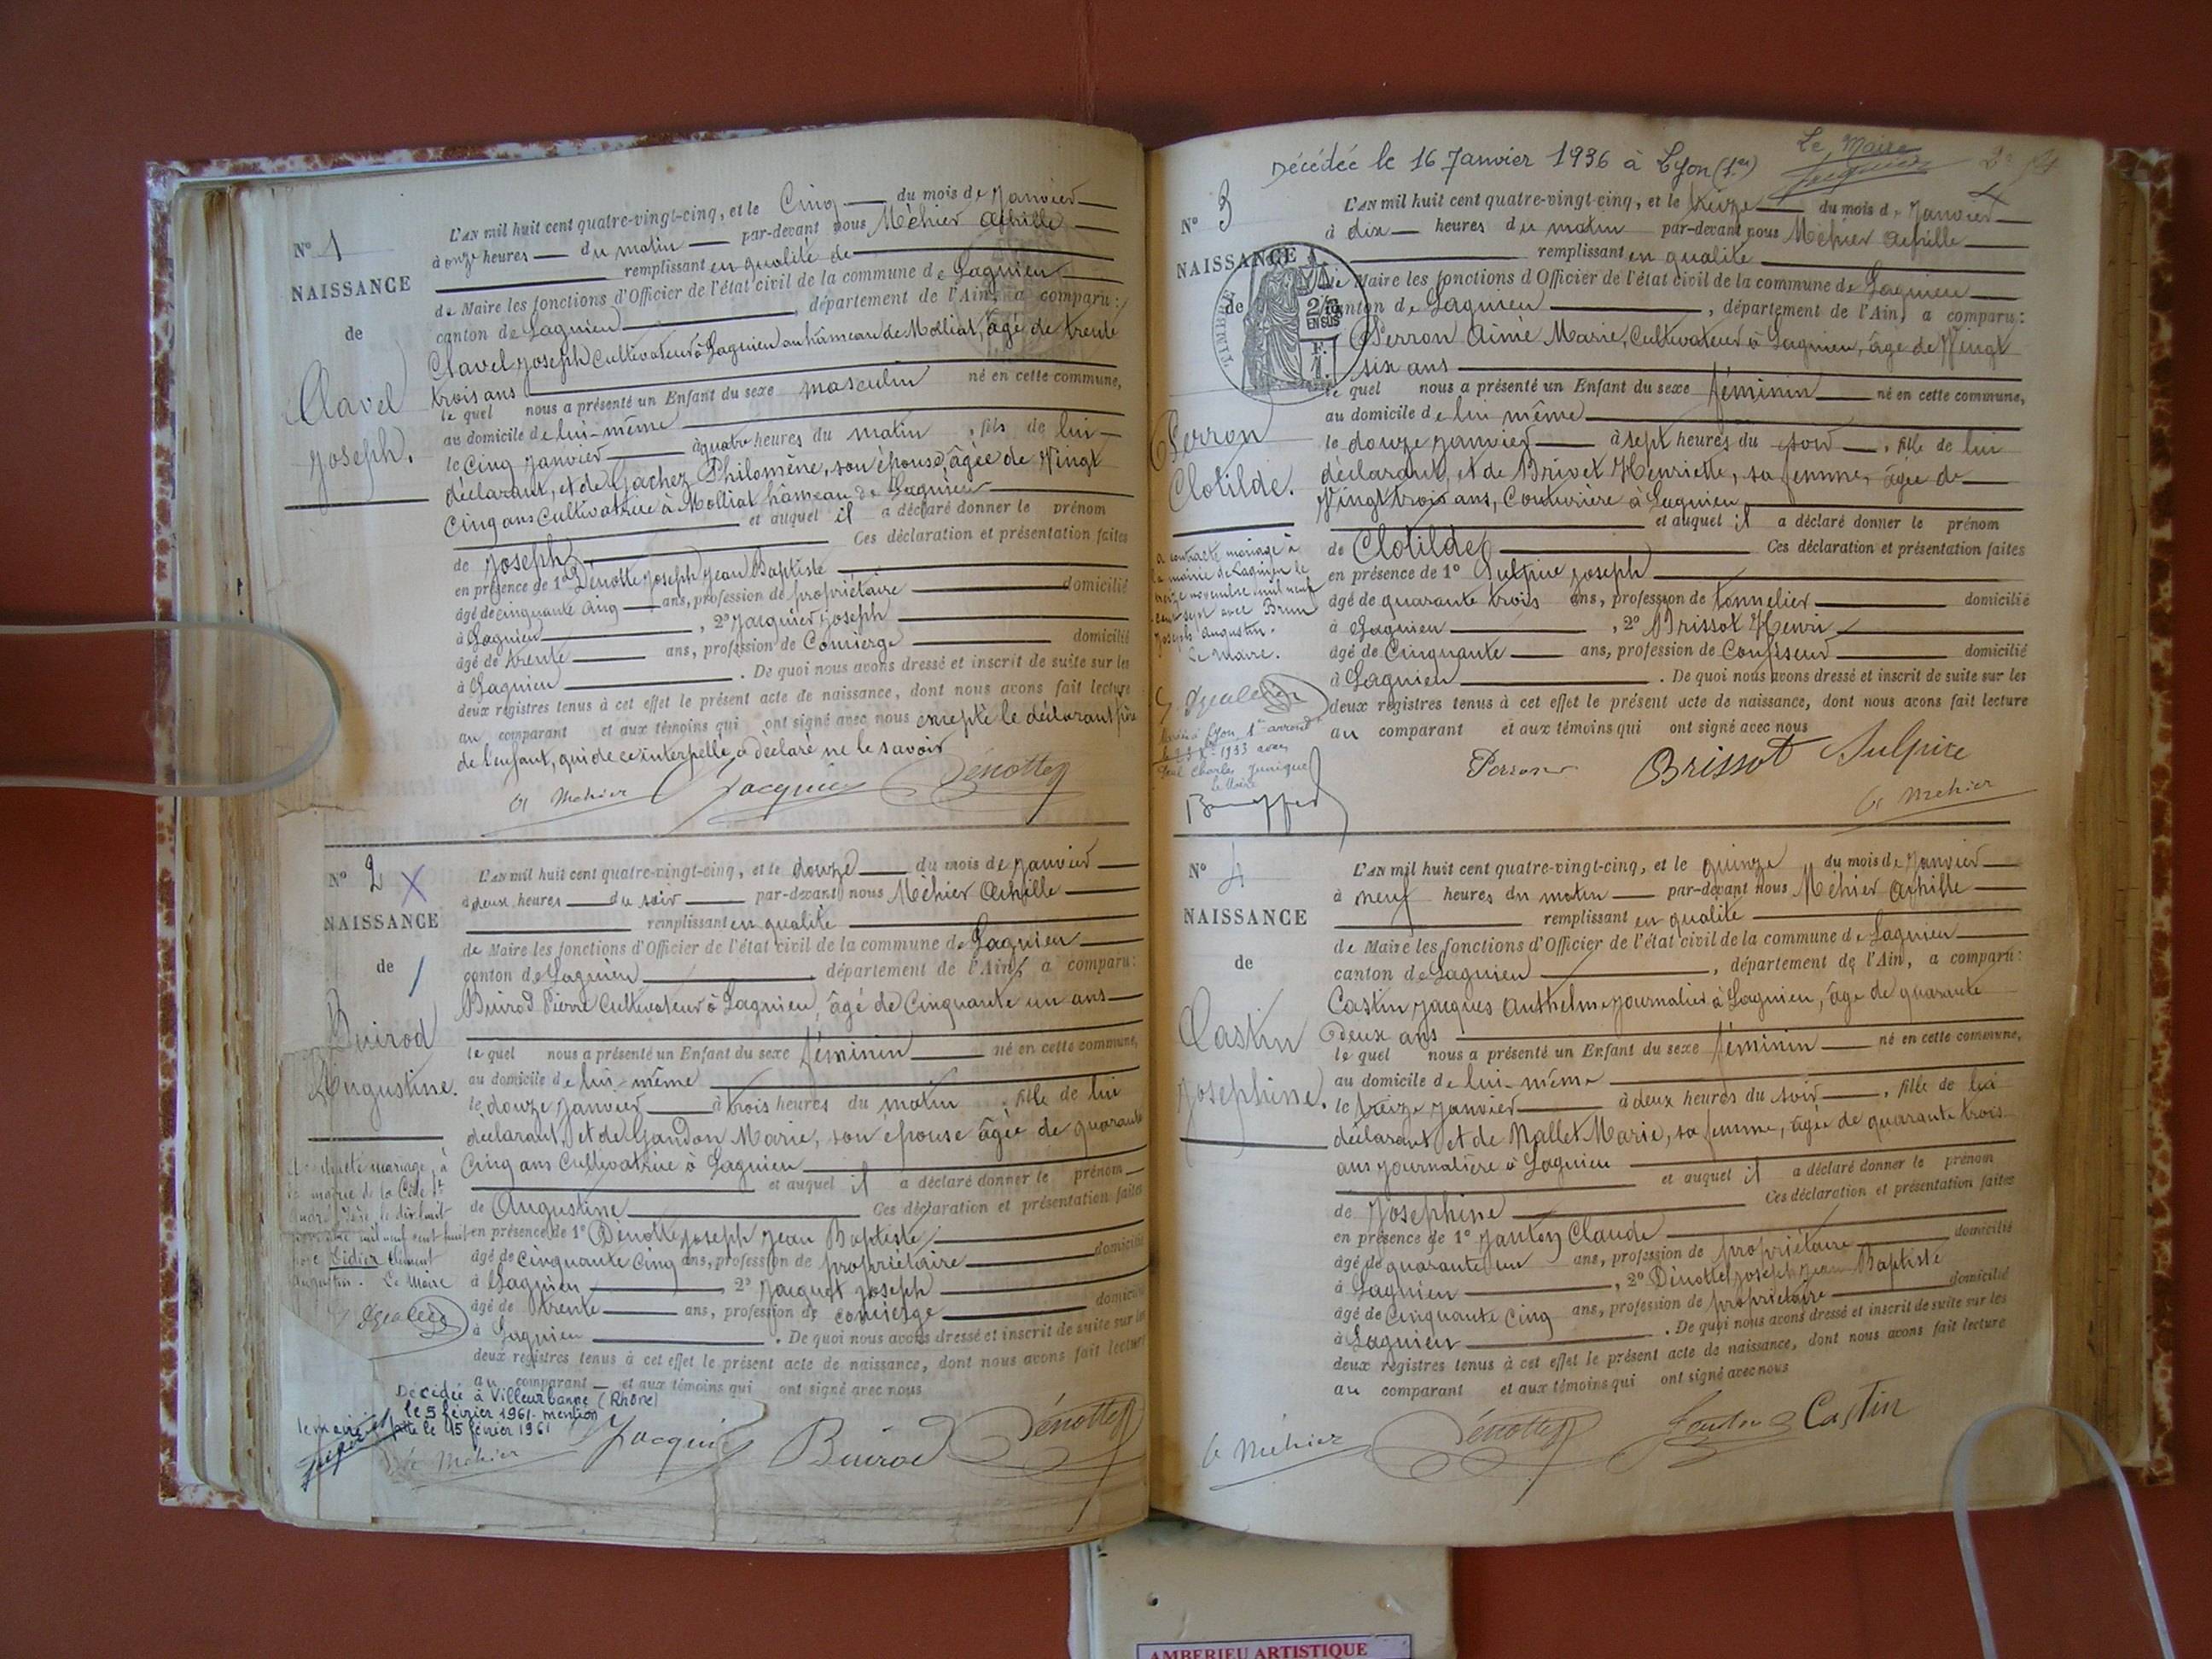 N° 1
NAISSANCE
de
Clavel
Joseph.
L'AN mil huit cent quatre-vingt-cinq, et le Cinq du mois de Janvier
à onze heures du matin par-devant nous Méhier Achille
remplissant en qualité de
de Maire les fonctions d'Officier de l'état civil de la commune de Lagnieu
canton de Lagnieu, département de l'Ain, a comparu :
Clavel Joseph Cultivateur à Lagnieu au hâmeau de Molliat, âgé de trente
trois ans
le quel nous a présenté un Enfant du sexe masculin né en cette commune,
au domicile de lui-même
le Cinq Janvier à quatre heures du matin, fils de lui
déclarant, et de Gachez Philomène, son épouse, âgée de Vingt
Cinq ans Cultivatrice à Molliat hâmeau de Lagnieu
et auquel il a déclaré donner le prénom
de Joseph Ces déclaration et présentation faites
en présence de 1° Dénotte Joseph Jean Baptiste
âgé de cinquante cinq ans, profession de propriétaire domicilié
à Lagnieu, 2° Jacquier Joseph
âgé de trente ans, profession de Concierge domicilié
à Lagnieu. De quoi nous avons dressé et inscrit de suite sur les
deux registres tenus à cet effet le présent acte de naissance, dont nous avons fait lecture
au comparant et aux témoins qui ont signé avec nous excepté le déclarant père
de l'enfant, qui de ce interpellé a déclaré ne le savoir
Méhier Jacquier Dénotte
N° 2 X
NAISSANCE
de
Buirod
Augustine.
L'AN mil huit cent quatre-vingt-cinq, et le douze du mois de Janvier
à deux heures du soir par-devant nous Méhier Achille
remplissant en qualité
de Maire les fonctions d'Officier de l'état civil de la commune de Lagnieu
canton de Lagnieu, département de l'Ain, a comparu :
Buirod Pierre Cultivateur à Lagnieu, âgé de Cinquante un ans
le quel nous a présenté un Enfant du sexe féminin né en cette commune,
au domicile de lui-même
le douze Janvier à trois heures du matin, fille de lui
déclarant, et de Gandon Marie, son épouse âgée de quarante
Cinq ans Cultivatrice à Lagnieu
et auquel il a déclaré donner le prénom
de Augustine Ces déclaration et présentation faites
en présence de 1° Dénotte Joseph Jean Baptiste
âgé de cinquante Cinq ans, profession de propriétaire domicilié
à Lagnieu, 2° Jacquet Joseph
âgé de trente ans, profession de concierge domicilié
à Lagnieu. De quoi nous avons dressé et inscrit de suite sur les
deux registres tenus à cet effet le présent acte de naissance, dont nous avons fait lecture
au comparant et aux témoins qui ont signé avec nous
mariage, à
la mairie de la Côte St
André Isère le dix huit
mil neuf cent huit
avec Didier Clément
Augustin. Le Maire
Décédée à Villeurbanne (Rhône)
le 5 février 1961. mention
faite le 15 février 1961
le maire
Méhier Jacquier Buirod Dénotte
Décédée le 16 Janvier 1936 à Lyon (1er)
Le Maire
N° 3
NAISSANCE
de
Perron
Clotilde.
TIMBRE
2/10
EN SUS
F.
1.
L'AN mil huit cent quatre-vingt-cinq, et le treize du mois de Janvier
à dix heures du matin par-devant nous Méhier Achille
remplissant en qualité
de Maire les fonctions d'Officier de l'état civil de la commune de Lagnieu
canton de Lagnieu, département de l'Ain, a comparu :
Perron Aimé Marie, Cultivateur à Lagnieu, âgé de Vingt
six ans
le quel nous a présenté un Enfant du sexe féminin né en cette commune,
au domicile de lui même
le douze Janvier à sept heures du soir, fille de lui
déclarant, et de Brivet Henriette, sa femme, âgée de
Vingt trois ans, Couturière à Lagnieu
et auquel il a déclaré donner le prénom
de Clotilde Ces déclaration et présentation faites
en présence de 1° Sulpice Joseph
âgé de quarante trois ans, profession de tonnelier domicilié
à Lagnieu, 2° Brissot Henri
âgé de Cinquante ans, profession de Confiseur domicilié
à Lagnieu. De quoi nous avons dressé et inscrit de suite sur les
deux registres tenus à cet effet le présent acte de naissance, dont nous avons fait lecture
au comparant et aux témoins qui ont signé avec nous
a contracté mariage à
la mairie de Lagnieu le
treize novembre mil neuf
cent sept avec Brun
Joseph Augustin.
Le Maire.
Lyon 1er arrond
1933 avec
Paul Charles Junique
Le Maire
Perron Brissot Sulpice
Méhier
N° 4
NAISSANCE
de
Castin
Josephine.
L'AN mil huit cent quatre-vingt-cinq, et le quinze du mois de Janvier
à neuf heures du matin par-devant nous Méhier Achille
remplissant en qualité
de Maire les fonctions d'Officier de l'état civil de la commune de Lagnieu
canton de Lagnieu, département de l'Ain, a comparu :
Castin Jacques Anthelme journalier à Lagnieu, âgé de quarante
deux ans
le quel nous a présenté un Enfant du sexe féminin né en cette commune,
au domicile de lui-même
le treize Janvier à deux heures du soir, fille de lui
déclarant et de Nallet Marie, sa femme, âgée de quarante trois
ans journalière à Lagnieu
et auquel il a déclaré donner le prénom
de Josephine Ces déclaration et présentation faites
en présence de 1° Janton Claude
âgé de quarante un ans, profession de propriétaire domicilié
à Lagnieu, 2° Dénotte Joseph Jean Baptiste
âgé de Cinquante Cinq ans, profession de propriétaire domicilié
à Lagnieu. De quoi nous avons dressé et inscrit de suite sur les
deux registres tenus à cet effet le présent acte de naissance, dont nous avons fait lecture
au comparant et aux témoins qui ont signé avec nous
Méhier Dénotte Janton Castin
AMBERIEU ARTISTIQUE